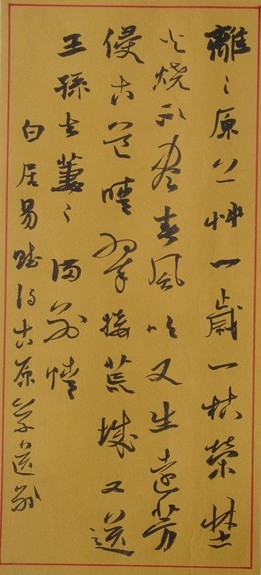 離〻原上艸一歲一枯榮埜
火燒不盡春風吹又生遠芳
侵古道晴翠接荒城又送
王孫去萋〻滿別情
白居易賦得古原草送別